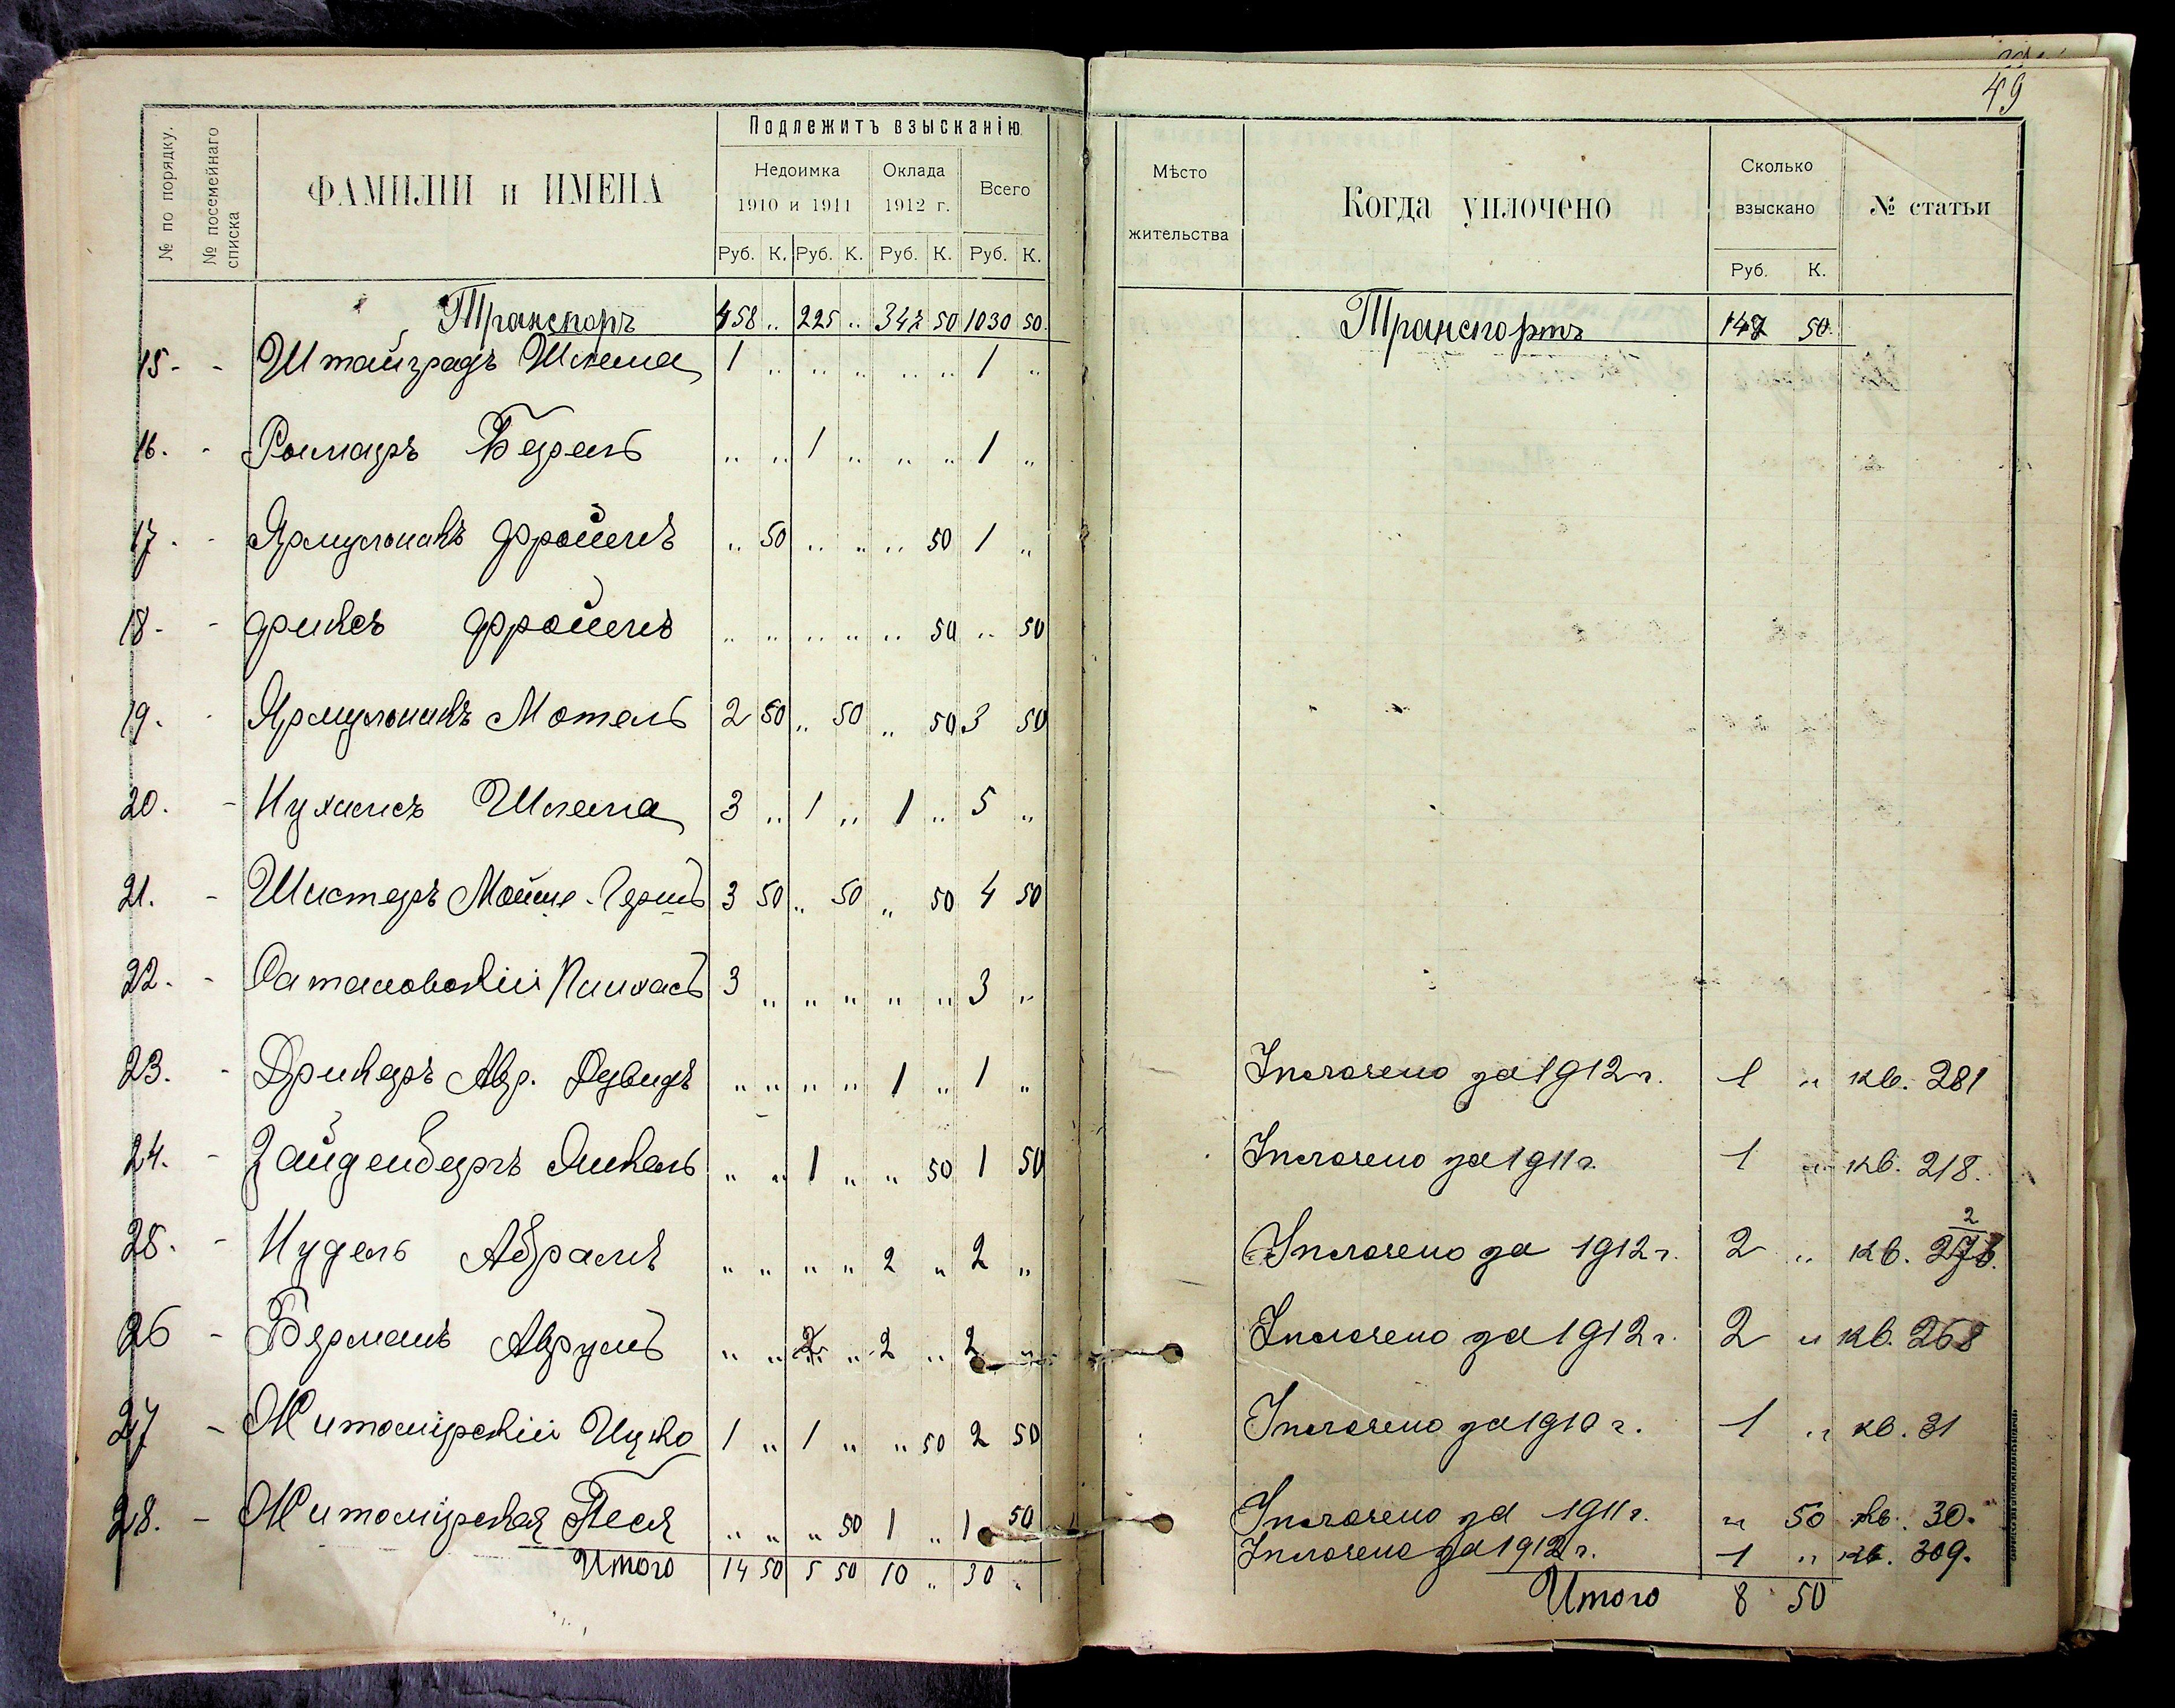 49
№ по порядку.
№ посемейнаго списка
ФАМИЛІИ и ИМЕНА
Подлежитъ взысканію
Недоимка 1910 и 1911
Оклада 1912 г.
Всего
Руб. К. Руб. К. Руб. К. Руб. К.
Мѣсто жительства
Когда уплочено
Сколько взыскано
Руб. К.
№ статьи
Транспортъ 458 „ 225 „ 347 50 1030 50
Транспортъ 147 50
15. - Штайградъ Шлема 1 „ „ „ „ „ 1 „
16. - Роймаръ Берель „ „ 1 „ „ „ 1 „
17. - Ярмульникъ Фроимъ „ 50 „ „ „ 50 1 „
18. - Фуксъ Фроимъ „ „ „ „ „ 50 „ 50
19. - Ярмульникъ Мотель 2 50 „ 50 „ 50 3 50
20. - Нухимсъ Шлема 3 „ 1 „ 1 „ 5 „
21. - Шистеръ Мойше-Гершъ 3 50 „ 50 „ 50 4 50
22. - Сатановскій Пинхасъ 3 „ „ „ „ „ 3 „
23. - Дрикеръ Авр. Дувидъ „ „ „ „ 1 „ 1 „
Уплочено за 1912 г. 1 „ кв. 281
24. - Зайденбергъ Янкель „ „ 1 „ „ 50 1 50
Уплочено за 1911 г. 1 „ кв. 218.
25. - Нудель Абрамъ „ „ „ „ 2 „ 2 „
Уплочено за 1912 г. 2 „ кв.
26 - Берманъ Аврумъ „ „ „ 2 „ 2 „
Уплочено за 1912 г. 2 „ кв. 268
27 - Житомірскій Ицко 1 „ 1 „ „ 50 2 50
Уплочено за 1910 г. 1 „ кв. 31
28. - Житомірская Песя „ „ „ 50 1 „ 1 50
Уплочено за 1911 г. „ 50 кв. 30.
Уплочено за 1912 г. 1 „ кв. 309.
Итого 14 50 5 50 10 „ 30 „
Итого 8 50